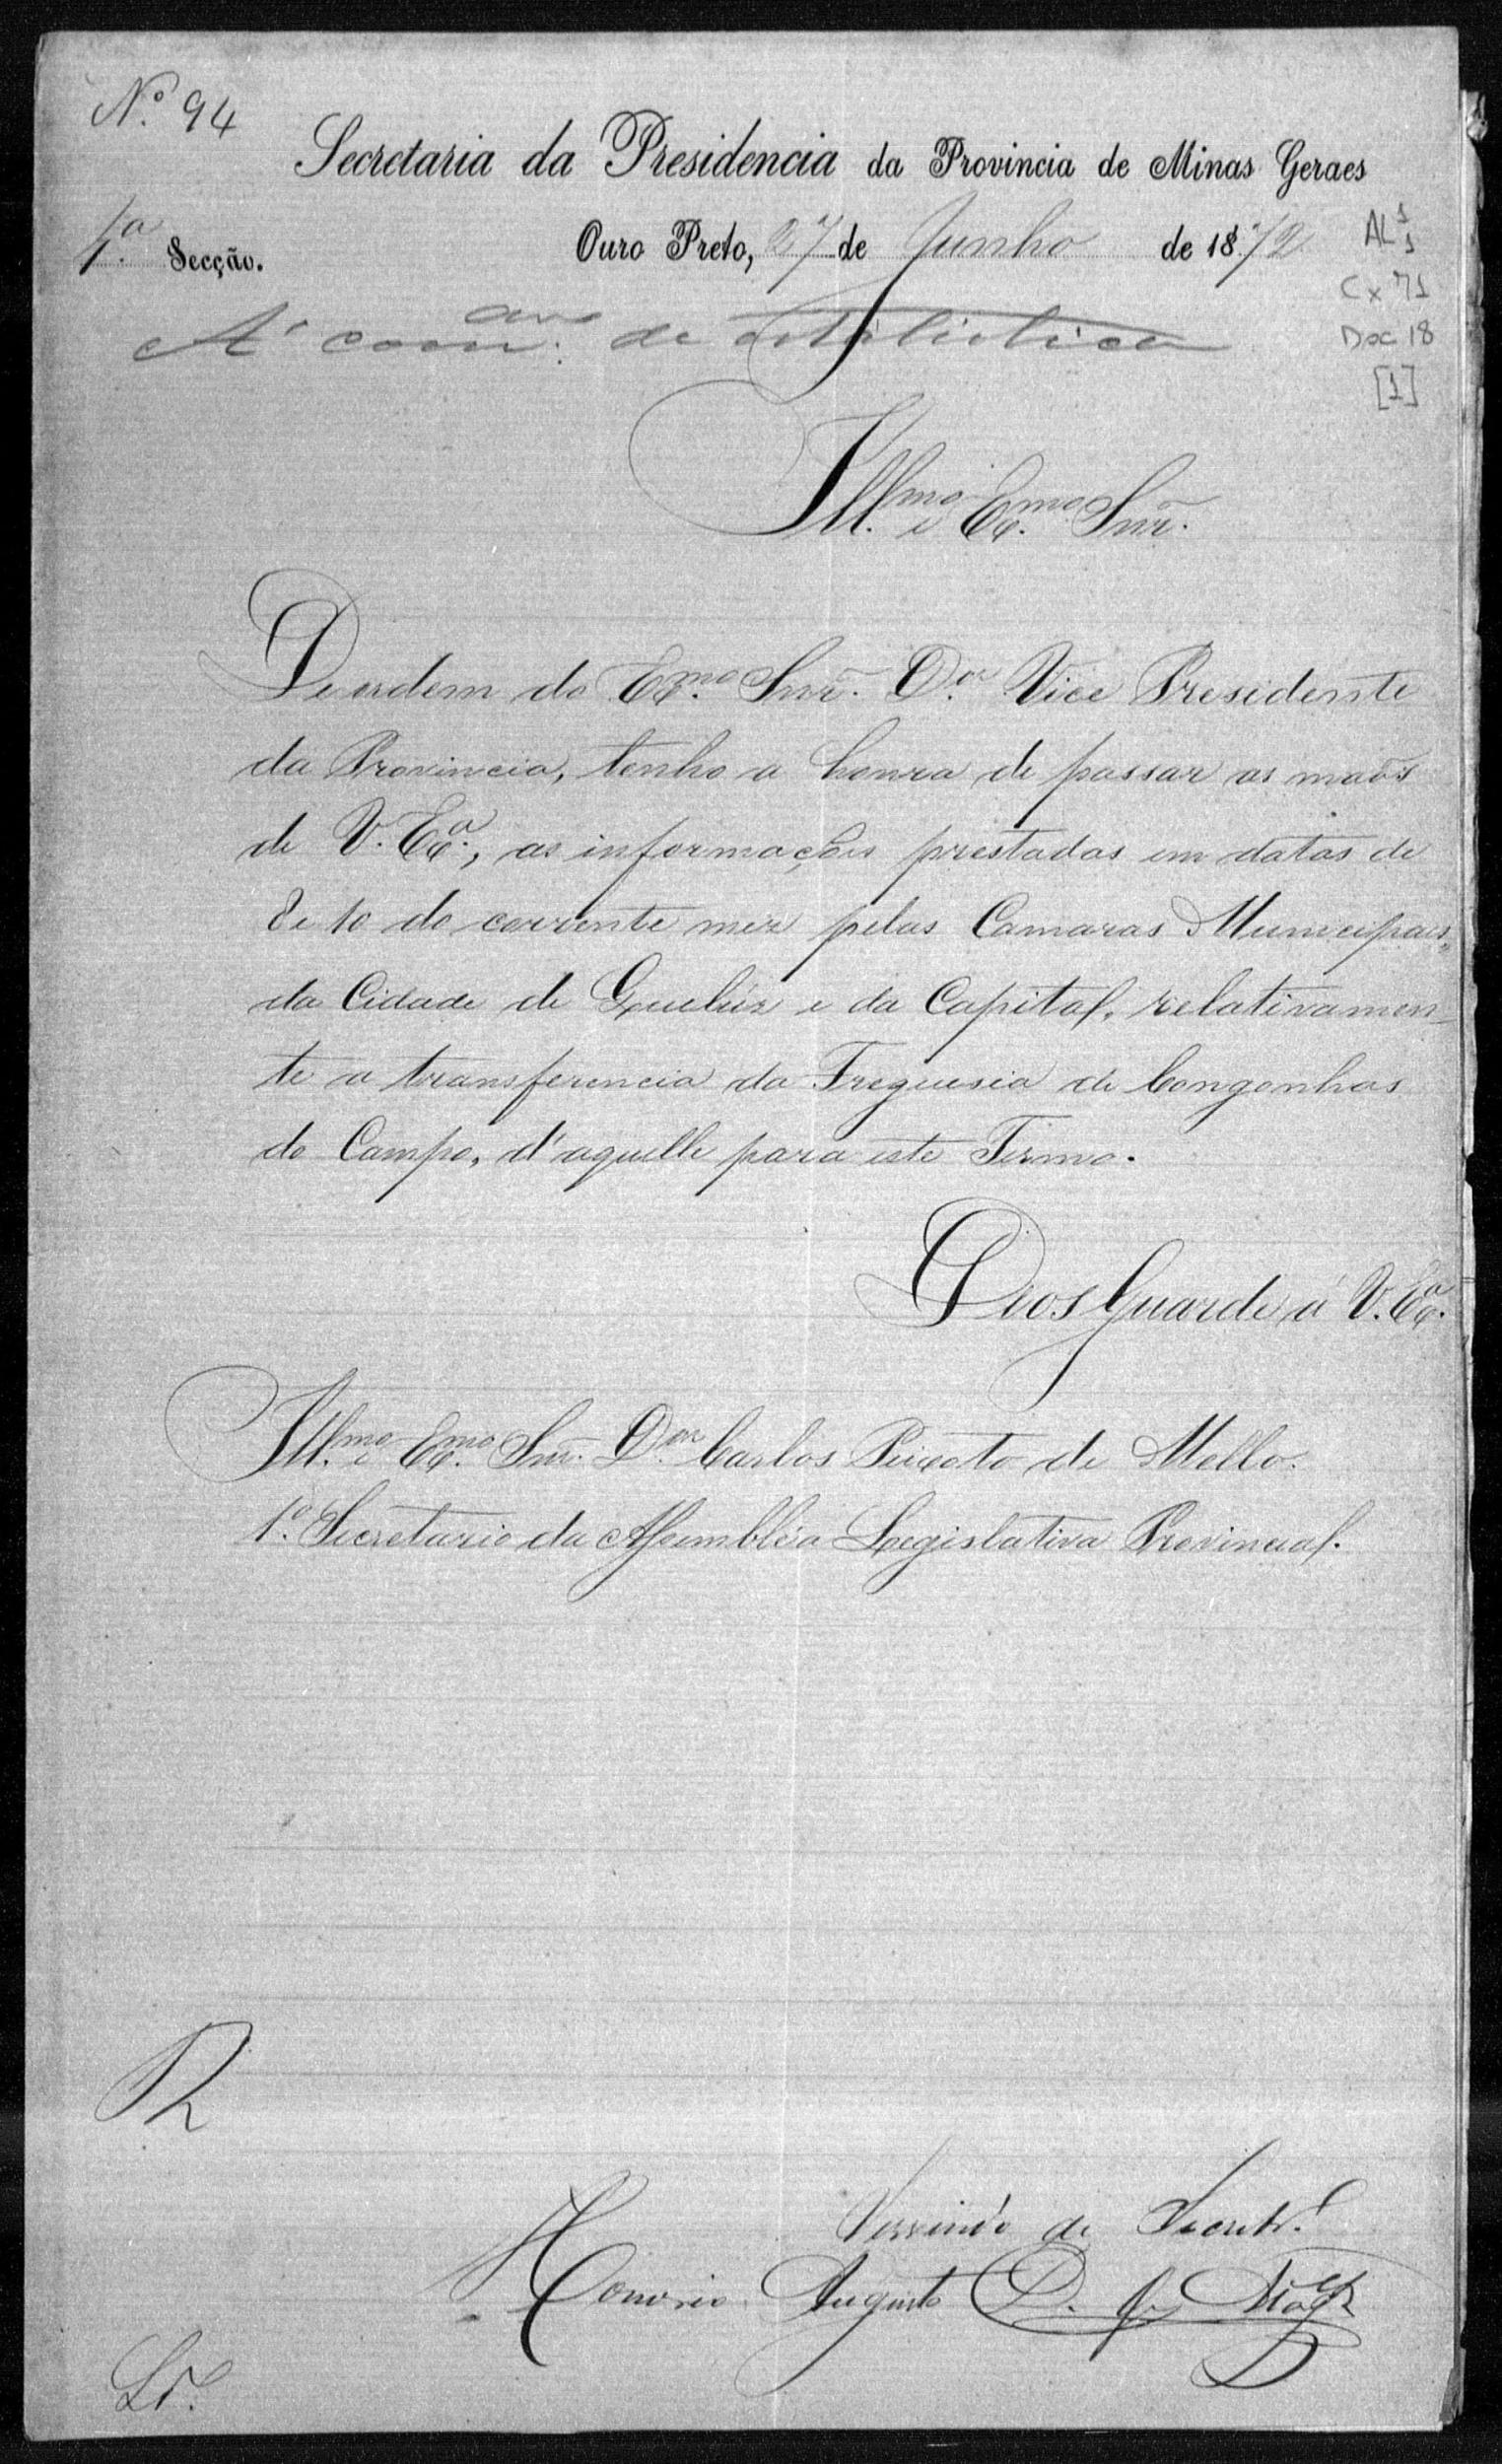 Nº 94
Secretaria da Presidencia da Provincia de Minas Geraes
1ª Secção. Ouro Preto, 27 de Junho de 1872
AL 1
1
Cx 71
Doc 18
[1]
A' comm.am de estatistica
Ill.mo e Ex.mo Snr.
De ordem do Ex.mo Snr. D.or Vice Presidente
da Provincia, tenho a honra de passar as maõs
de V. Ex.a, as informações prestadas em datas de
8 e 10 do corrente mez pelas Camaras Municipaes
da Cidade de Queluz e da Capital, relativamen-
te a transferencia da Freguesia de Congonhas
do Campo, d'aquelle para este Termo.
Deos Guarde á V. Ex.a
Ill.mo e Ex.mo Snr. D.or Carlos Peixoto de Mello.
1º Secretario da Assembléa Legislativa Provincial.
Servindo de Secretr.º
Honorio Augusto